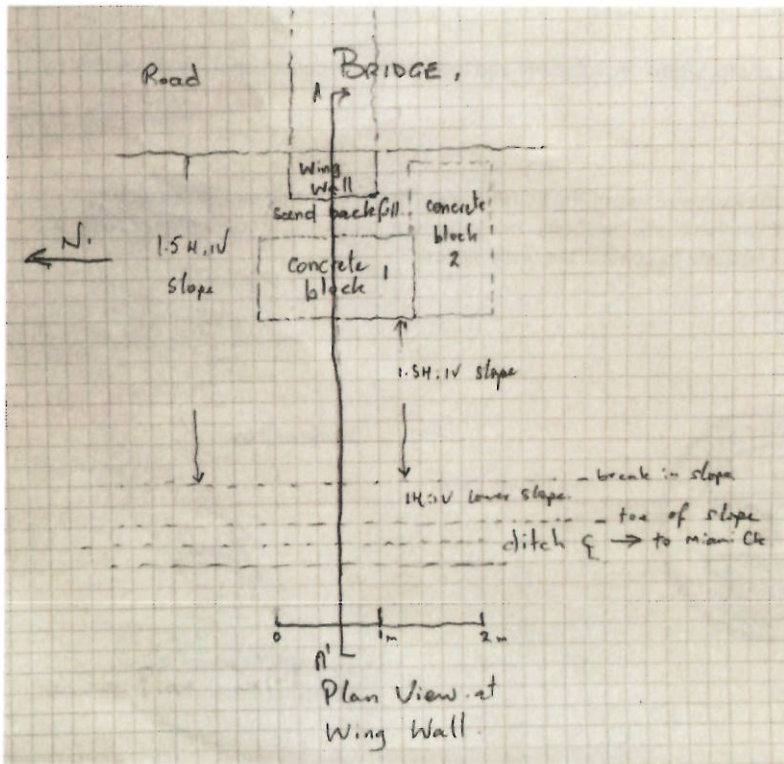 Road
BRIDGE.
A
Wing
Wall
sand backfill
concrete
block
2
N.
1.5H:1V
Slope
concrete
block 1
1.5H:1V slope
break in slope
1H:1V lower slope
toe of slope
ditch ℄ → to Miami Ck
0
1m
2m
A'
Plan View at
Wing Wall